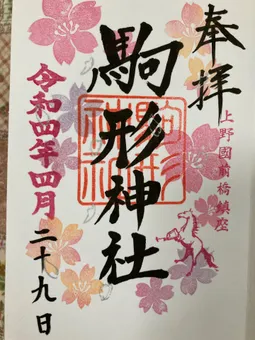 奉拝
上野國前橋鎮座
駒形神社
駒形神社
令和四年四月
二十九日